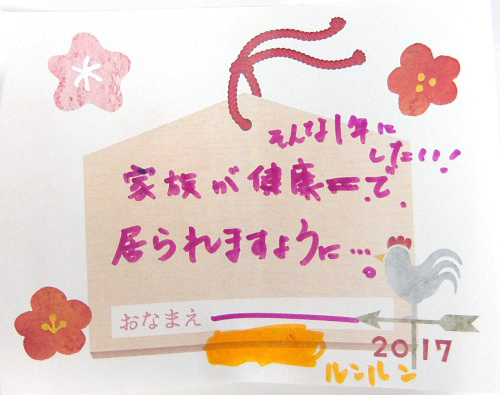 そんな1年に
したい!!
家族が健康で、
居られますように…。
おなまえ
2017
ルンルン